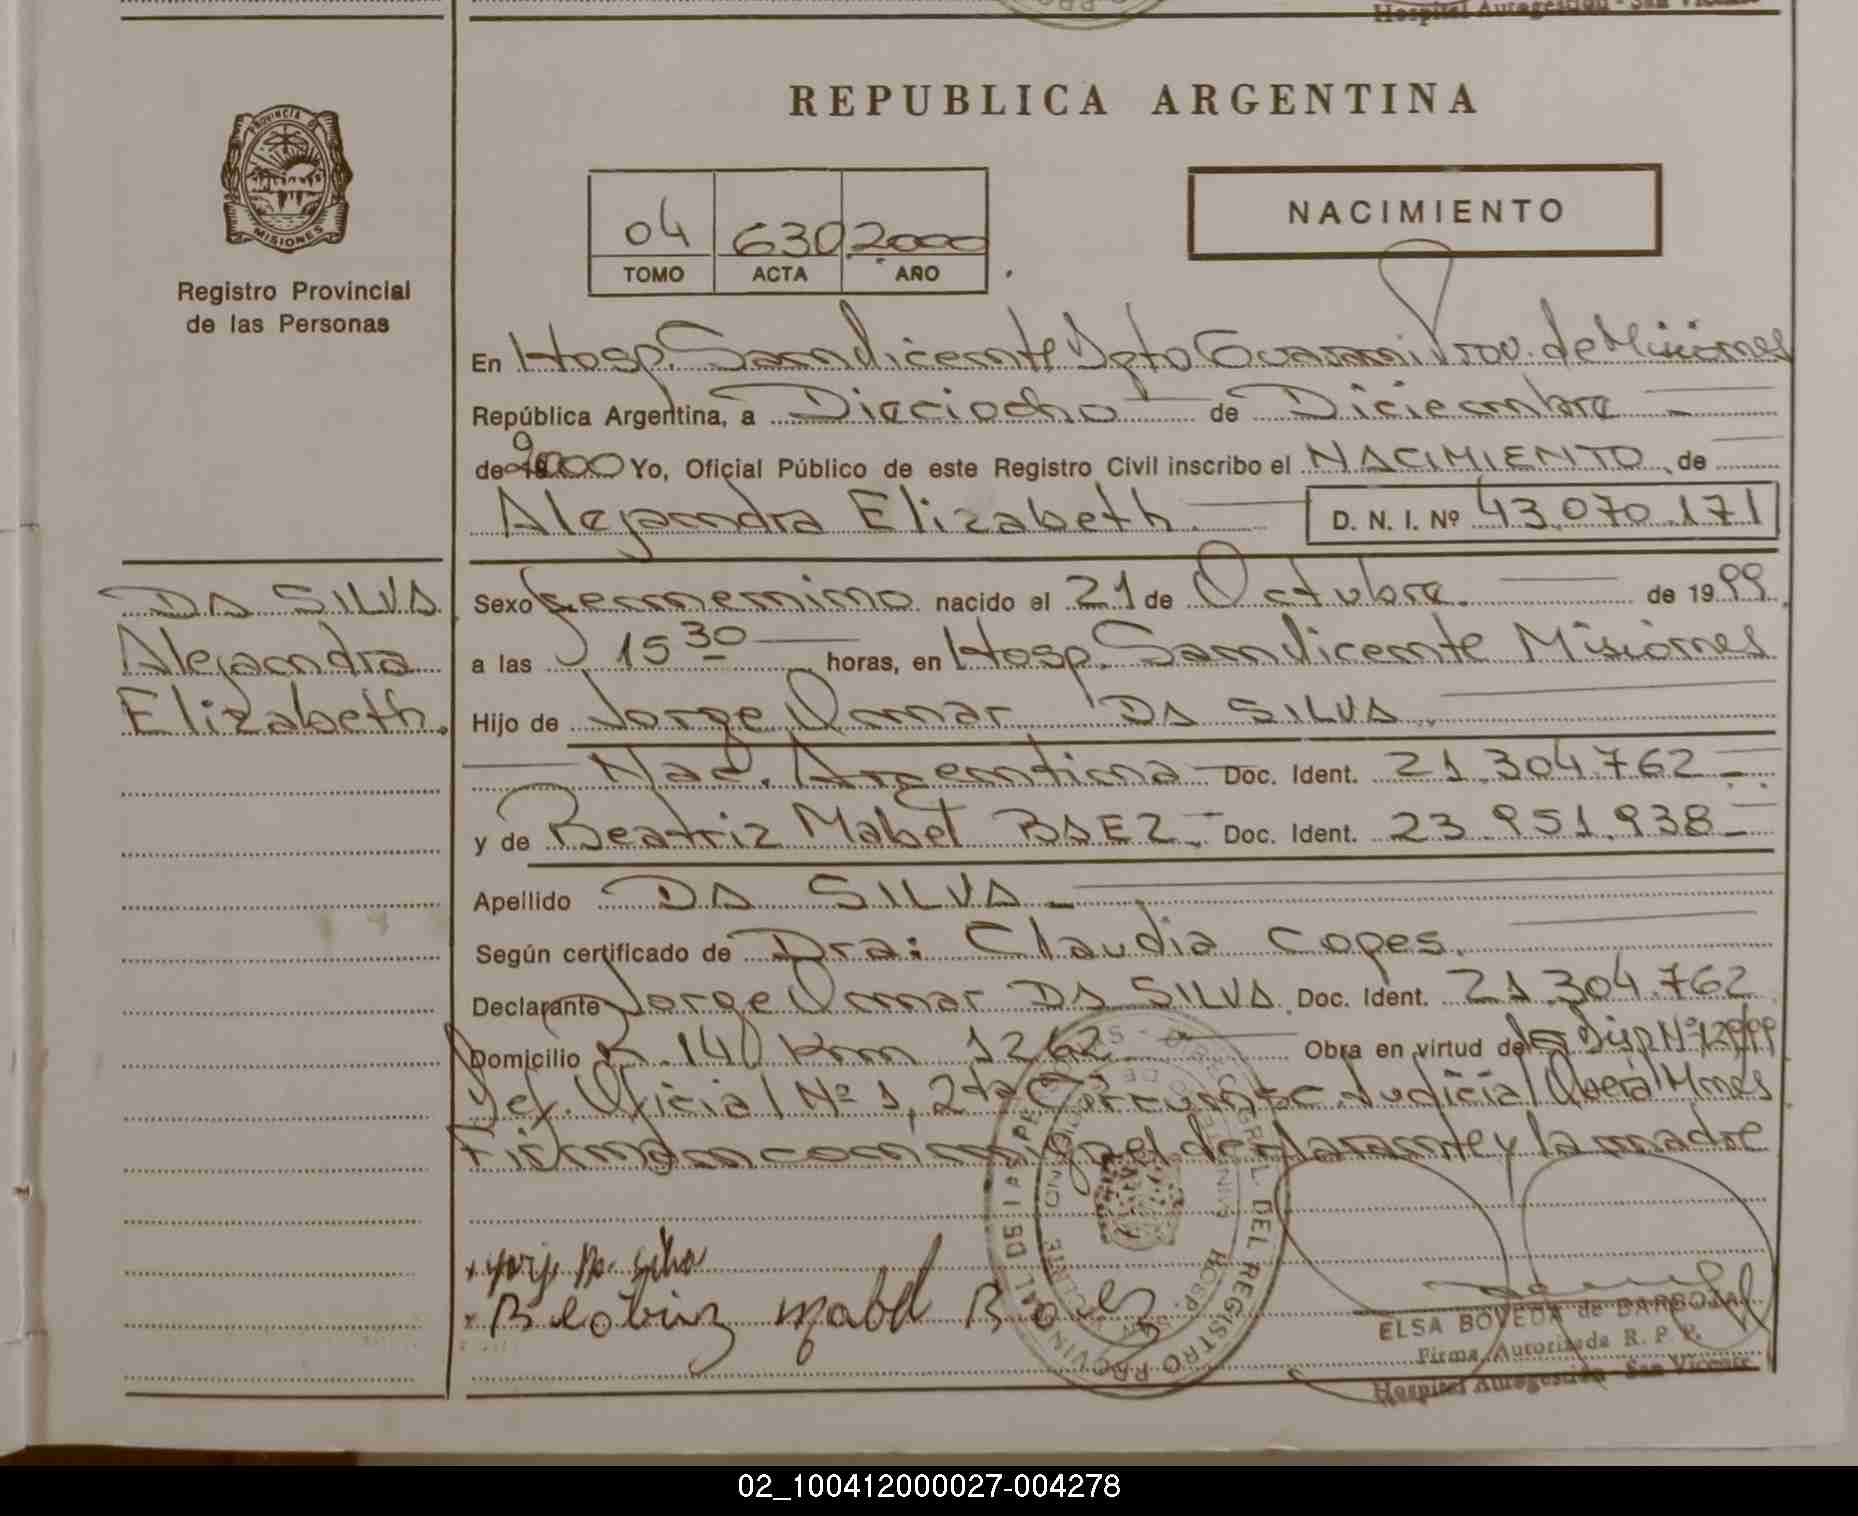 Hospital Autogestión - San Vicente
REPUBLICA ARGENTINA
PROVINCIA DE
MISIONES
Registro Provincial
de las Personas
04 630 2000
TOMO ACTA AÑO
NACIMIENTO
En Hosp. San Vicente Dpto Guarani Prov. de Misiones
República Argentina, a Dieciocho de Diciembre
de 2000 Yo, Oficial Público de este Registro Civil inscribo el NACIMIENTO de
Alejandra Elizabeth. D. N. I. Nº 43.070.171
DA SILVA
Alejandra
Elizabeth.
Sexo Femenino nacido el 21 de Octubre. de 1999
a las 15 30 horas, en Hosp. San Vicente Misiones
Hijo de Jorge Omar DA SILVA.
Nac. Argentina Doc. Ident. 21.304.762
y de Beatriz Mabel BAEZ Doc. Ident. 23.951.938
Apellido DA SILVA
Según certificado de Dra: Claudia Copes.
Declarante Jorge Omar DA SILVA. Doc. Ident. 21.304.762
Domicilio R. 14 Km 1262 Obra en virtud de Disp Nº
Def. Oficial Nº 1, 2ta Circunsc. Judicial Obera Mnes
Firman conmigo el declarante y la madre
REGISTRO PROVINCIAL DE LAS PERSONAS
Beatriz Mabel Baez
ELSA BOVEDA de BARBOZA
Firma Autorizada R. P. P.
Hospital Autogestión - San Vicente
02_100412000027-004278